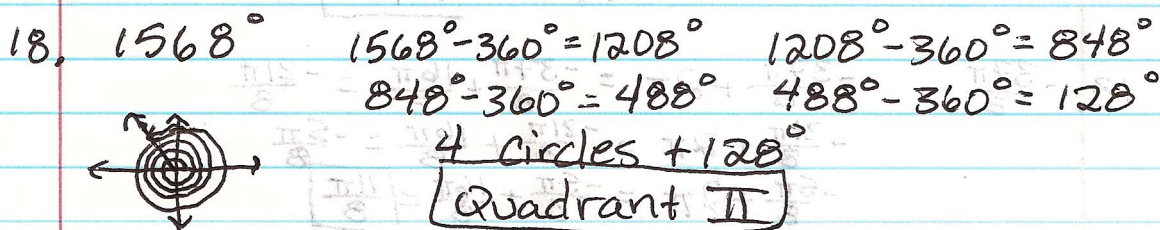 18. 1568° 1568°-360°=1208° 1208°-360°=848°
848°-360°=488° 488°-360°=128°
4 circles +128°
Quadrant II